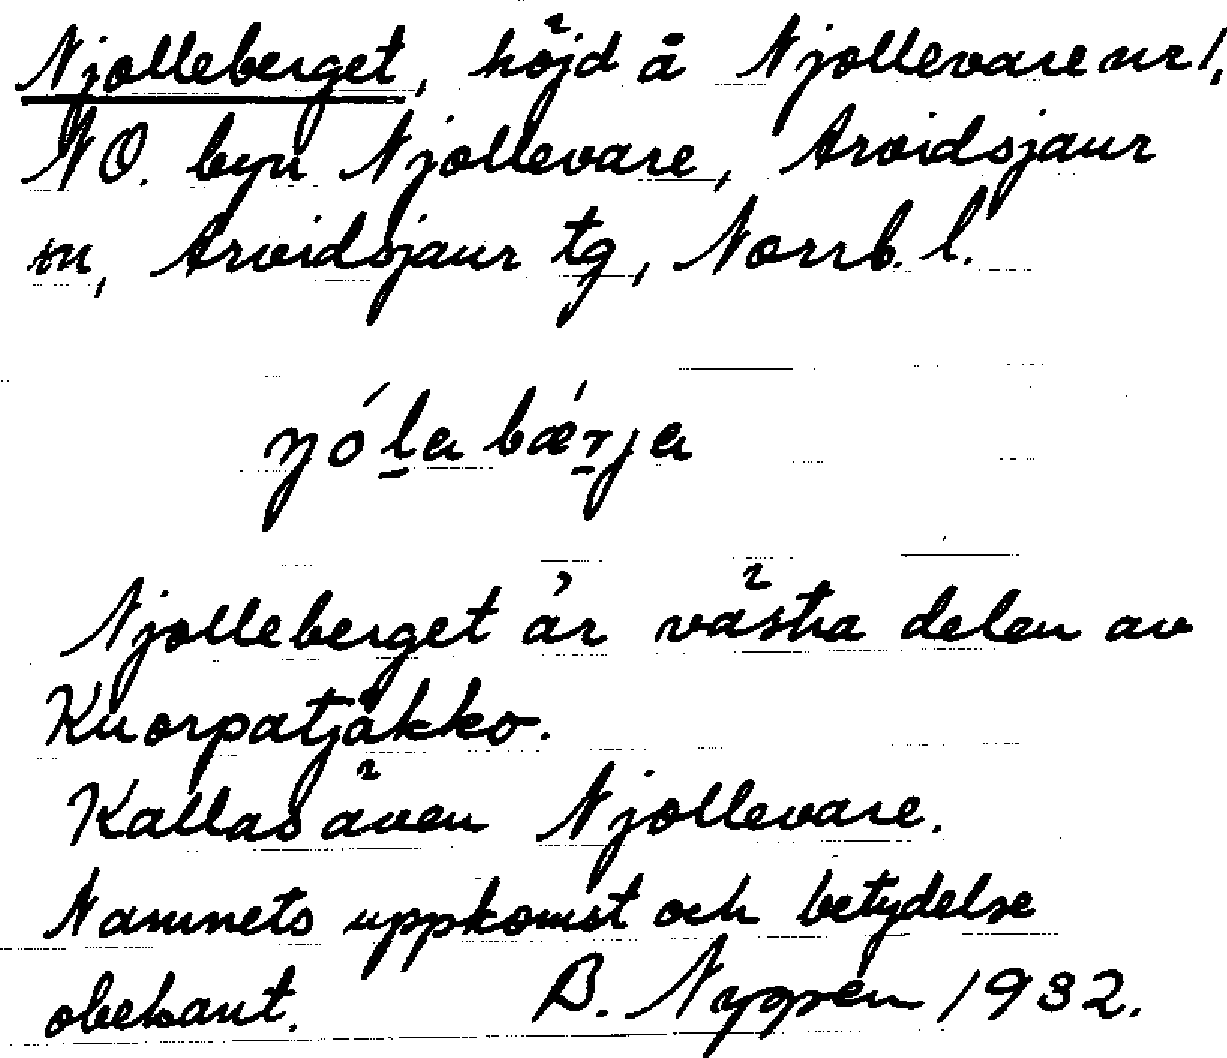 Njolleberget, höjd å Njollevare nr 1,
NO. byn Njollevare, Arvidsjaur
sn, Arvidsjaur tg, Norrb. l.
Njolleberget är västra delen av
Kuorpatjåkko.
Kallas även Njollevare.
Namnets uppkomst och betydelse
obekant. B. 1932.